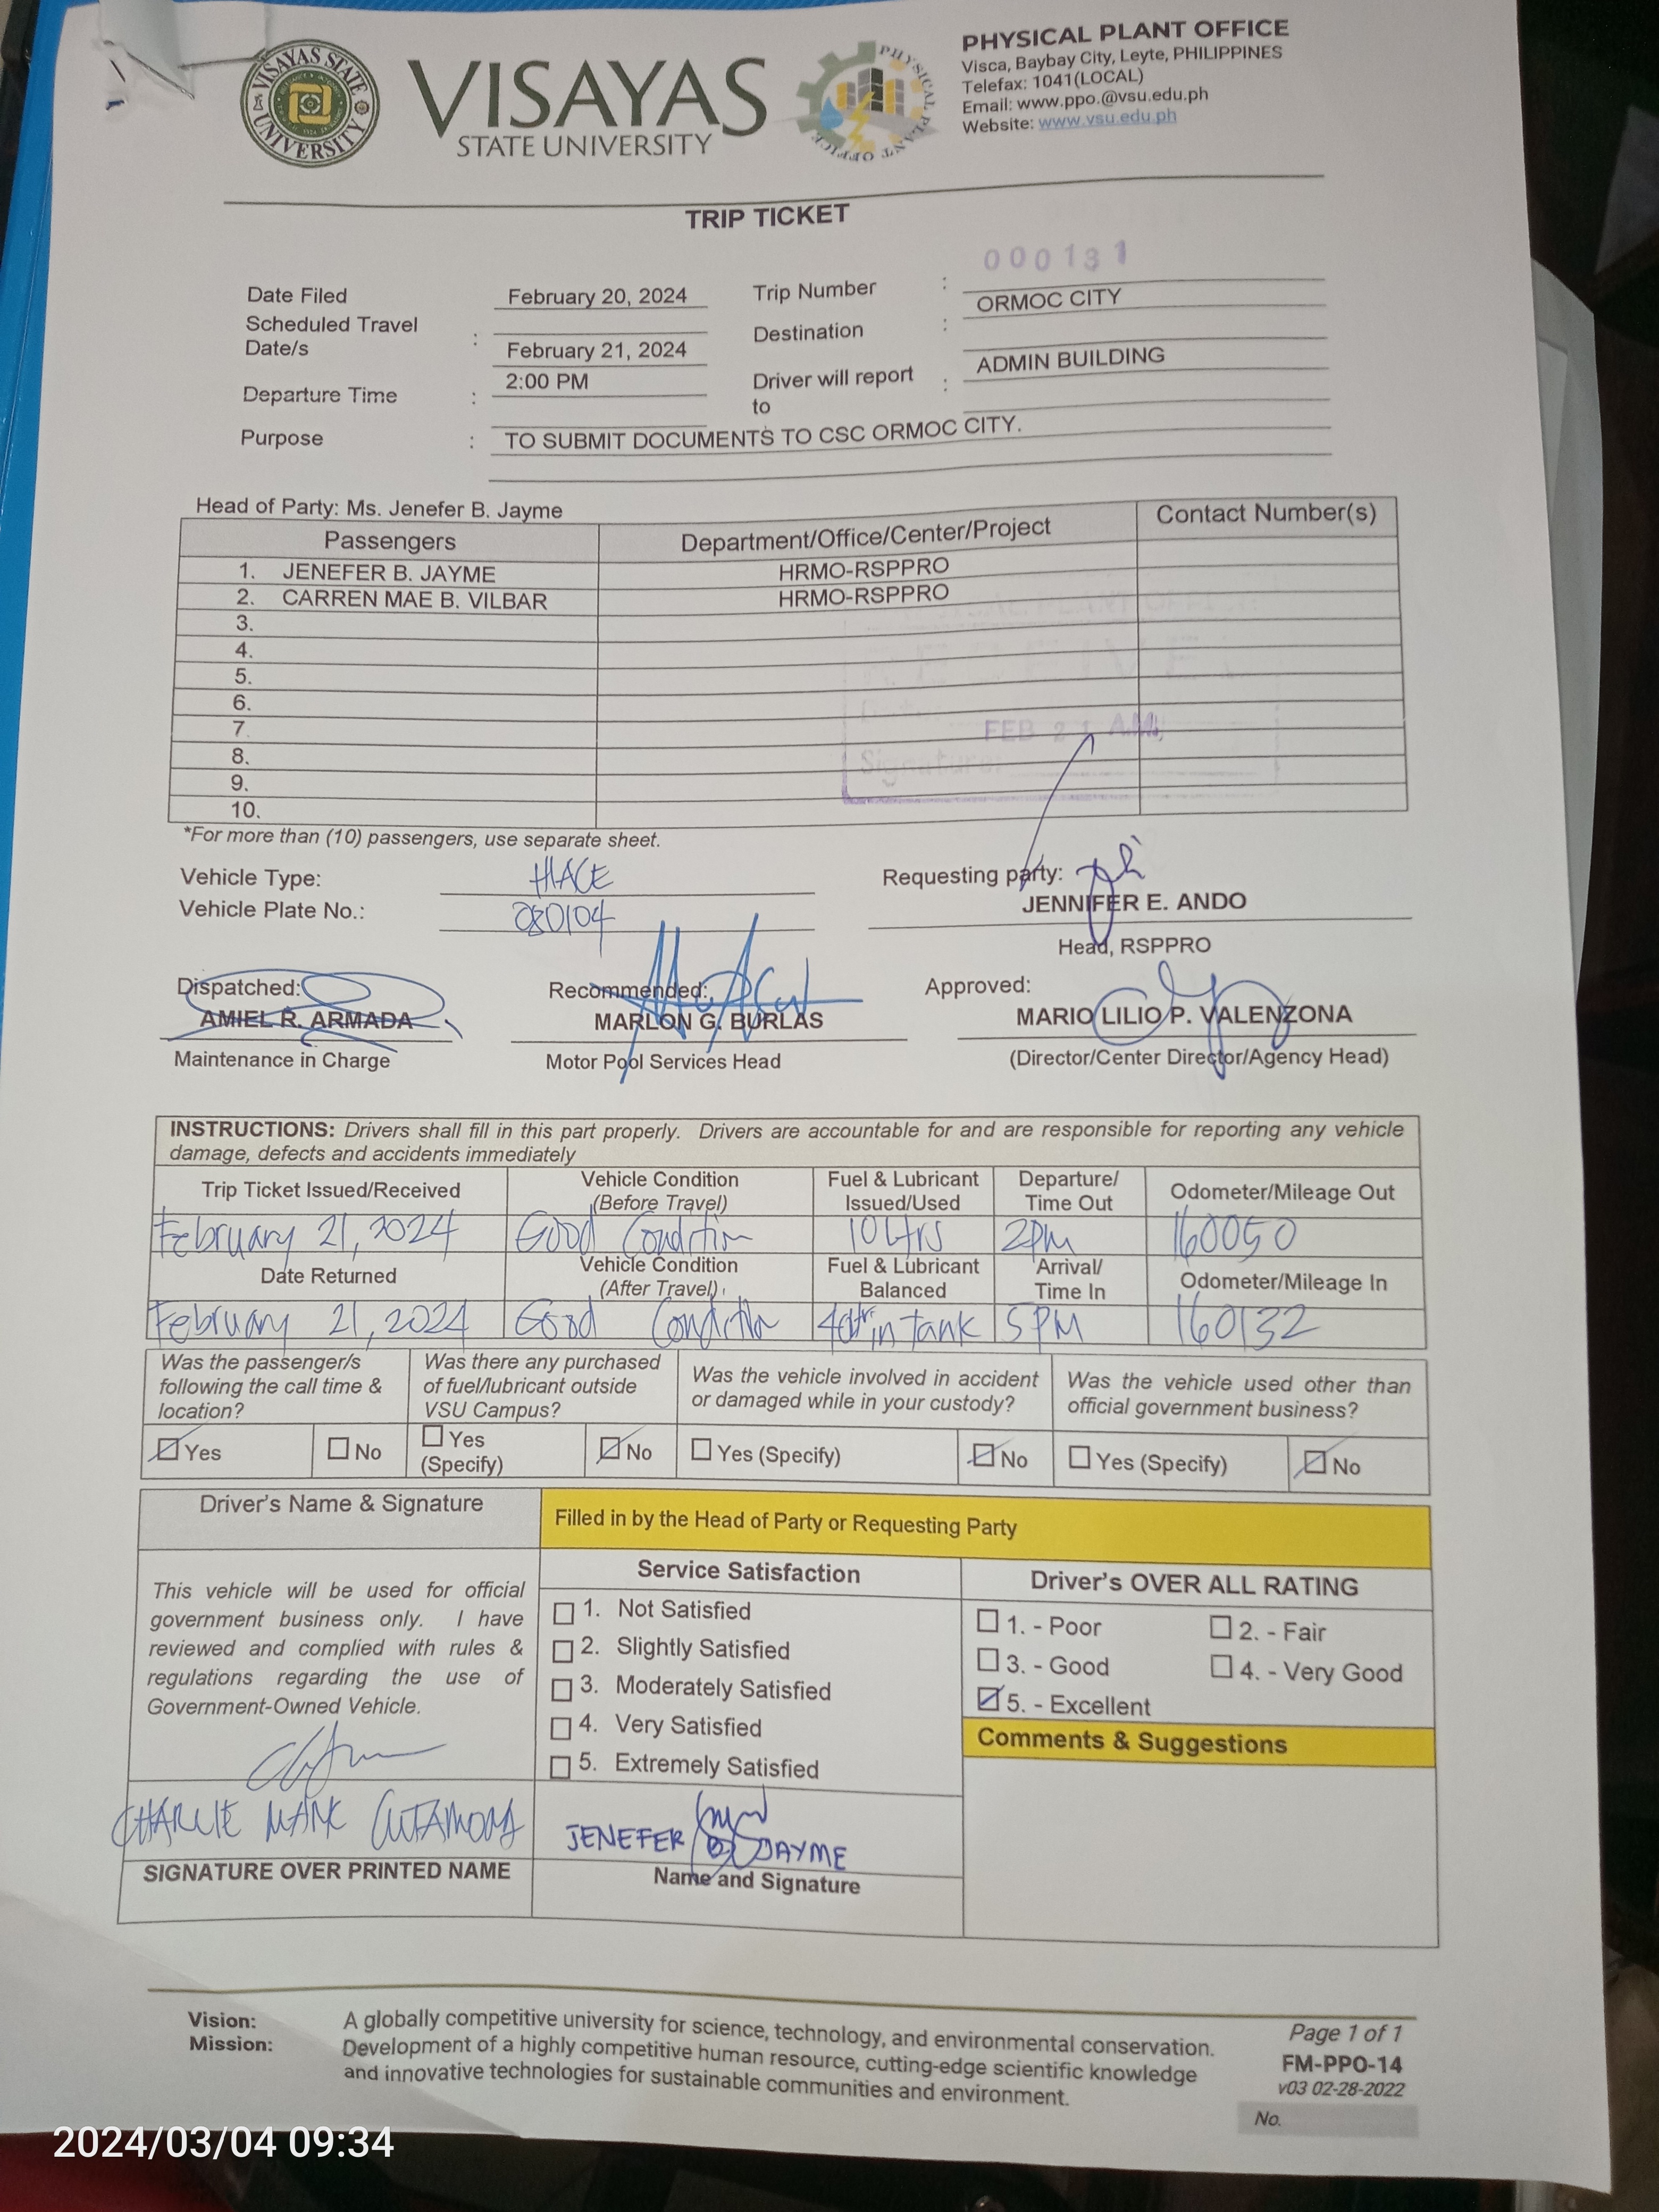 VISAYAS STATE UNIVERSITY
VISAYAS
STATE UNIVERSITY
PHYSICAL PLANT OFFICE
PHYSICAL PLANT OFFICE
Visca, Baybay City, Leyte, PHILIPPINES
Telefax: 1041(LOCAL)
Email: www.ppo.@vsu.edu.ph
Website: www.vsu.edu.ph
TRIP TICKET
000131
Date Filed February 20, 2024 Trip Number :
Scheduled Travel Date/s : February 21, 2024 Destination : ORMOC CITY
Departure Time : 2:00 PM Driver will report to : ADMIN BUILDING
Purpose : TO SUBMIT DOCUMENTS TO CSC ORMOC CITY.
Head of Party: Ms. Jenefer B. Jayme
Passengers Department/Office/Center/Project Contact Number(s)
1. JENEFER B. JAYME HRMO-RSPPRO
2. CARREN MAE B. VILBAR HRMO-RSPPRO
3.
4.
5.
6.
7.
8.
9.
10.
PHYSICAL PLANT OFFICE
RECEIVED
FEB 21 A.M.
Signature:
*For more than (10) passengers, use separate sheet.
Vehicle Type: HIACE Requesting party:
Vehicle Plate No.: 080104 JENNIFER E. ANDO
Head, RSPPRO
Dispatched: Recommended: Approved:
AMIEL R. ARMADA MARLON G. BURLAS MARIO LILIO P. VALENZONA
Maintenance in Charge Motor Pool Services Head (Director/Center Director/Agency Head)
INSTRUCTIONS: Drivers shall fill in this part properly. Drivers are accountable for and are responsible for reporting any vehicle
damage, defects and accidents immediately
Trip Ticket Issued/Received Vehicle Condition (Before Travel) Fuel & Lubricant Issued/Used Departure/ Time Out Odometer/Mileage Out
February 21, 2024 Good Condition 10 Ltrs 2PM 160050
Date Returned Vehicle Condition (After Travel) Fuel & Lubricant Balanced Arrival/ Time In Odometer/Mileage In
February 21, 2024 Good Condition in tank 5PM 160132
Was the passenger/s following the call time & location?
Was there any purchased of fuel/lubricant outside VSU Campus?
Was the vehicle involved in accident or damaged while in your custody?
Was the vehicle used other than official government business?
Yes No Yes (Specify) No Yes (Specify) No Yes (Specify) No
Driver's Name & Signature
Filled in by the Head of Party or Requesting Party
This vehicle will be used for official
government business only. I have
reviewed and complied with rules &
regulations regarding the use of
Government-Owned Vehicle.
CHARLIE MARK CUTAMORA
SIGNATURE OVER PRINTED NAME
Service Satisfaction
1. Not Satisfied
2. Slightly Satisfied
3. Moderately Satisfied
4. Very Satisfied
5. Extremely Satisfied
JENEFER B. JAYME
Name and Signature
Driver's OVER ALL RATING
1. - Poor 2. - Fair
3. - Good 4. - Very Good
5. - Excellent
Comments & Suggestions
Vision: A globally competitive university for science, technology, and environmental conservation.
Mission: Development of a highly competitive human resource, cutting-edge scientific knowledge
and innovative technologies for sustainable communities and environment.
Page 1 of 1
FM-PPO-14
v03 02-28-2022
No.
2024/03/04 09:34